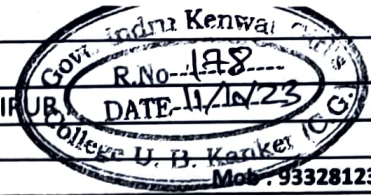 Govt. Indru Kenwat
R.No---178----
IRPUR
DATE-11/10/23
College U. B. Kanker (C.G.)
Mob. 93328123